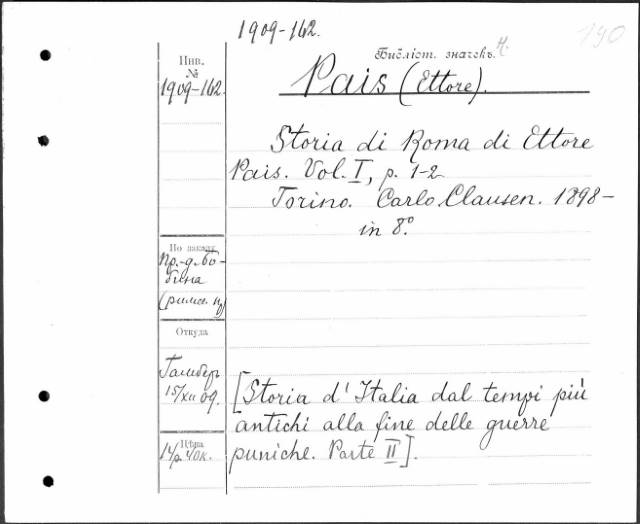 1909-162.
190
Инв.
№
1909-162.
Библіот. значекъ.
Pais (Ettore).
Storia di Roma di Ettore
Pais. Vol. I, p. 1-2
Torino. Carlo Clausen. 1898-
in 8.º
По заказу
Пр.-д. Бо-
бина
Откуда
15/XII 09.
Цѣна
14р. 40к.
[Storia d'Italia dal tempi più
antichi alla fine delle guerre
puniche. Parte II].